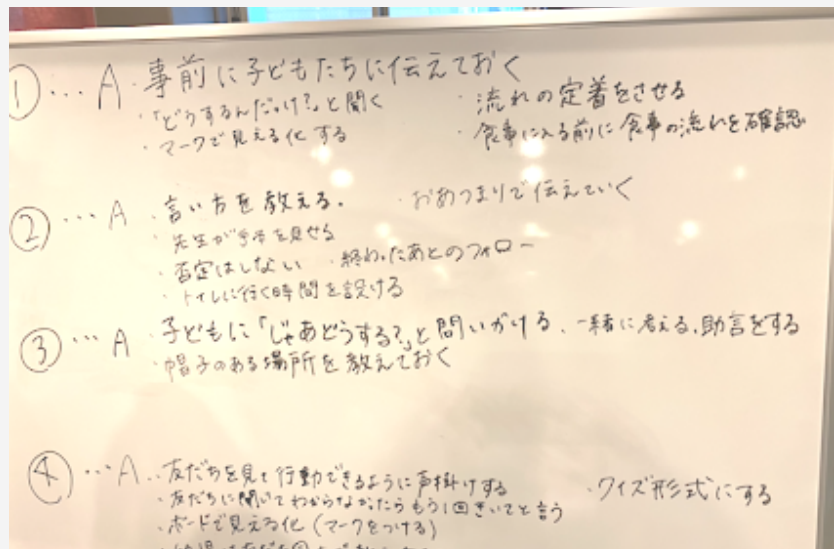 ① … A ・事前に子どもたちに伝えておく
・「どうするんだっけ?」と聞く ・流れの定着をさせる
・マークで見える化する ・食事に入る前に食事の流れを確認
② … A ・言い方を教える。 ・おあつまりで伝えていく
・先生が手本を見せる
・否定はしない ・終わったあとのフォロー
・トイレに行く時間を設ける
③ … A ・子どもに「じゃあどうする?」と問いかける、一緒に考える、助言をする
・帽子のある場所を教えておく
④ … A ・友だちを見て行動できるように声掛けする ・クイズ形式にする
・友だちに聞いてわからなかったらもう1回きいてと言う
・ボードで見える化(マークをつける)